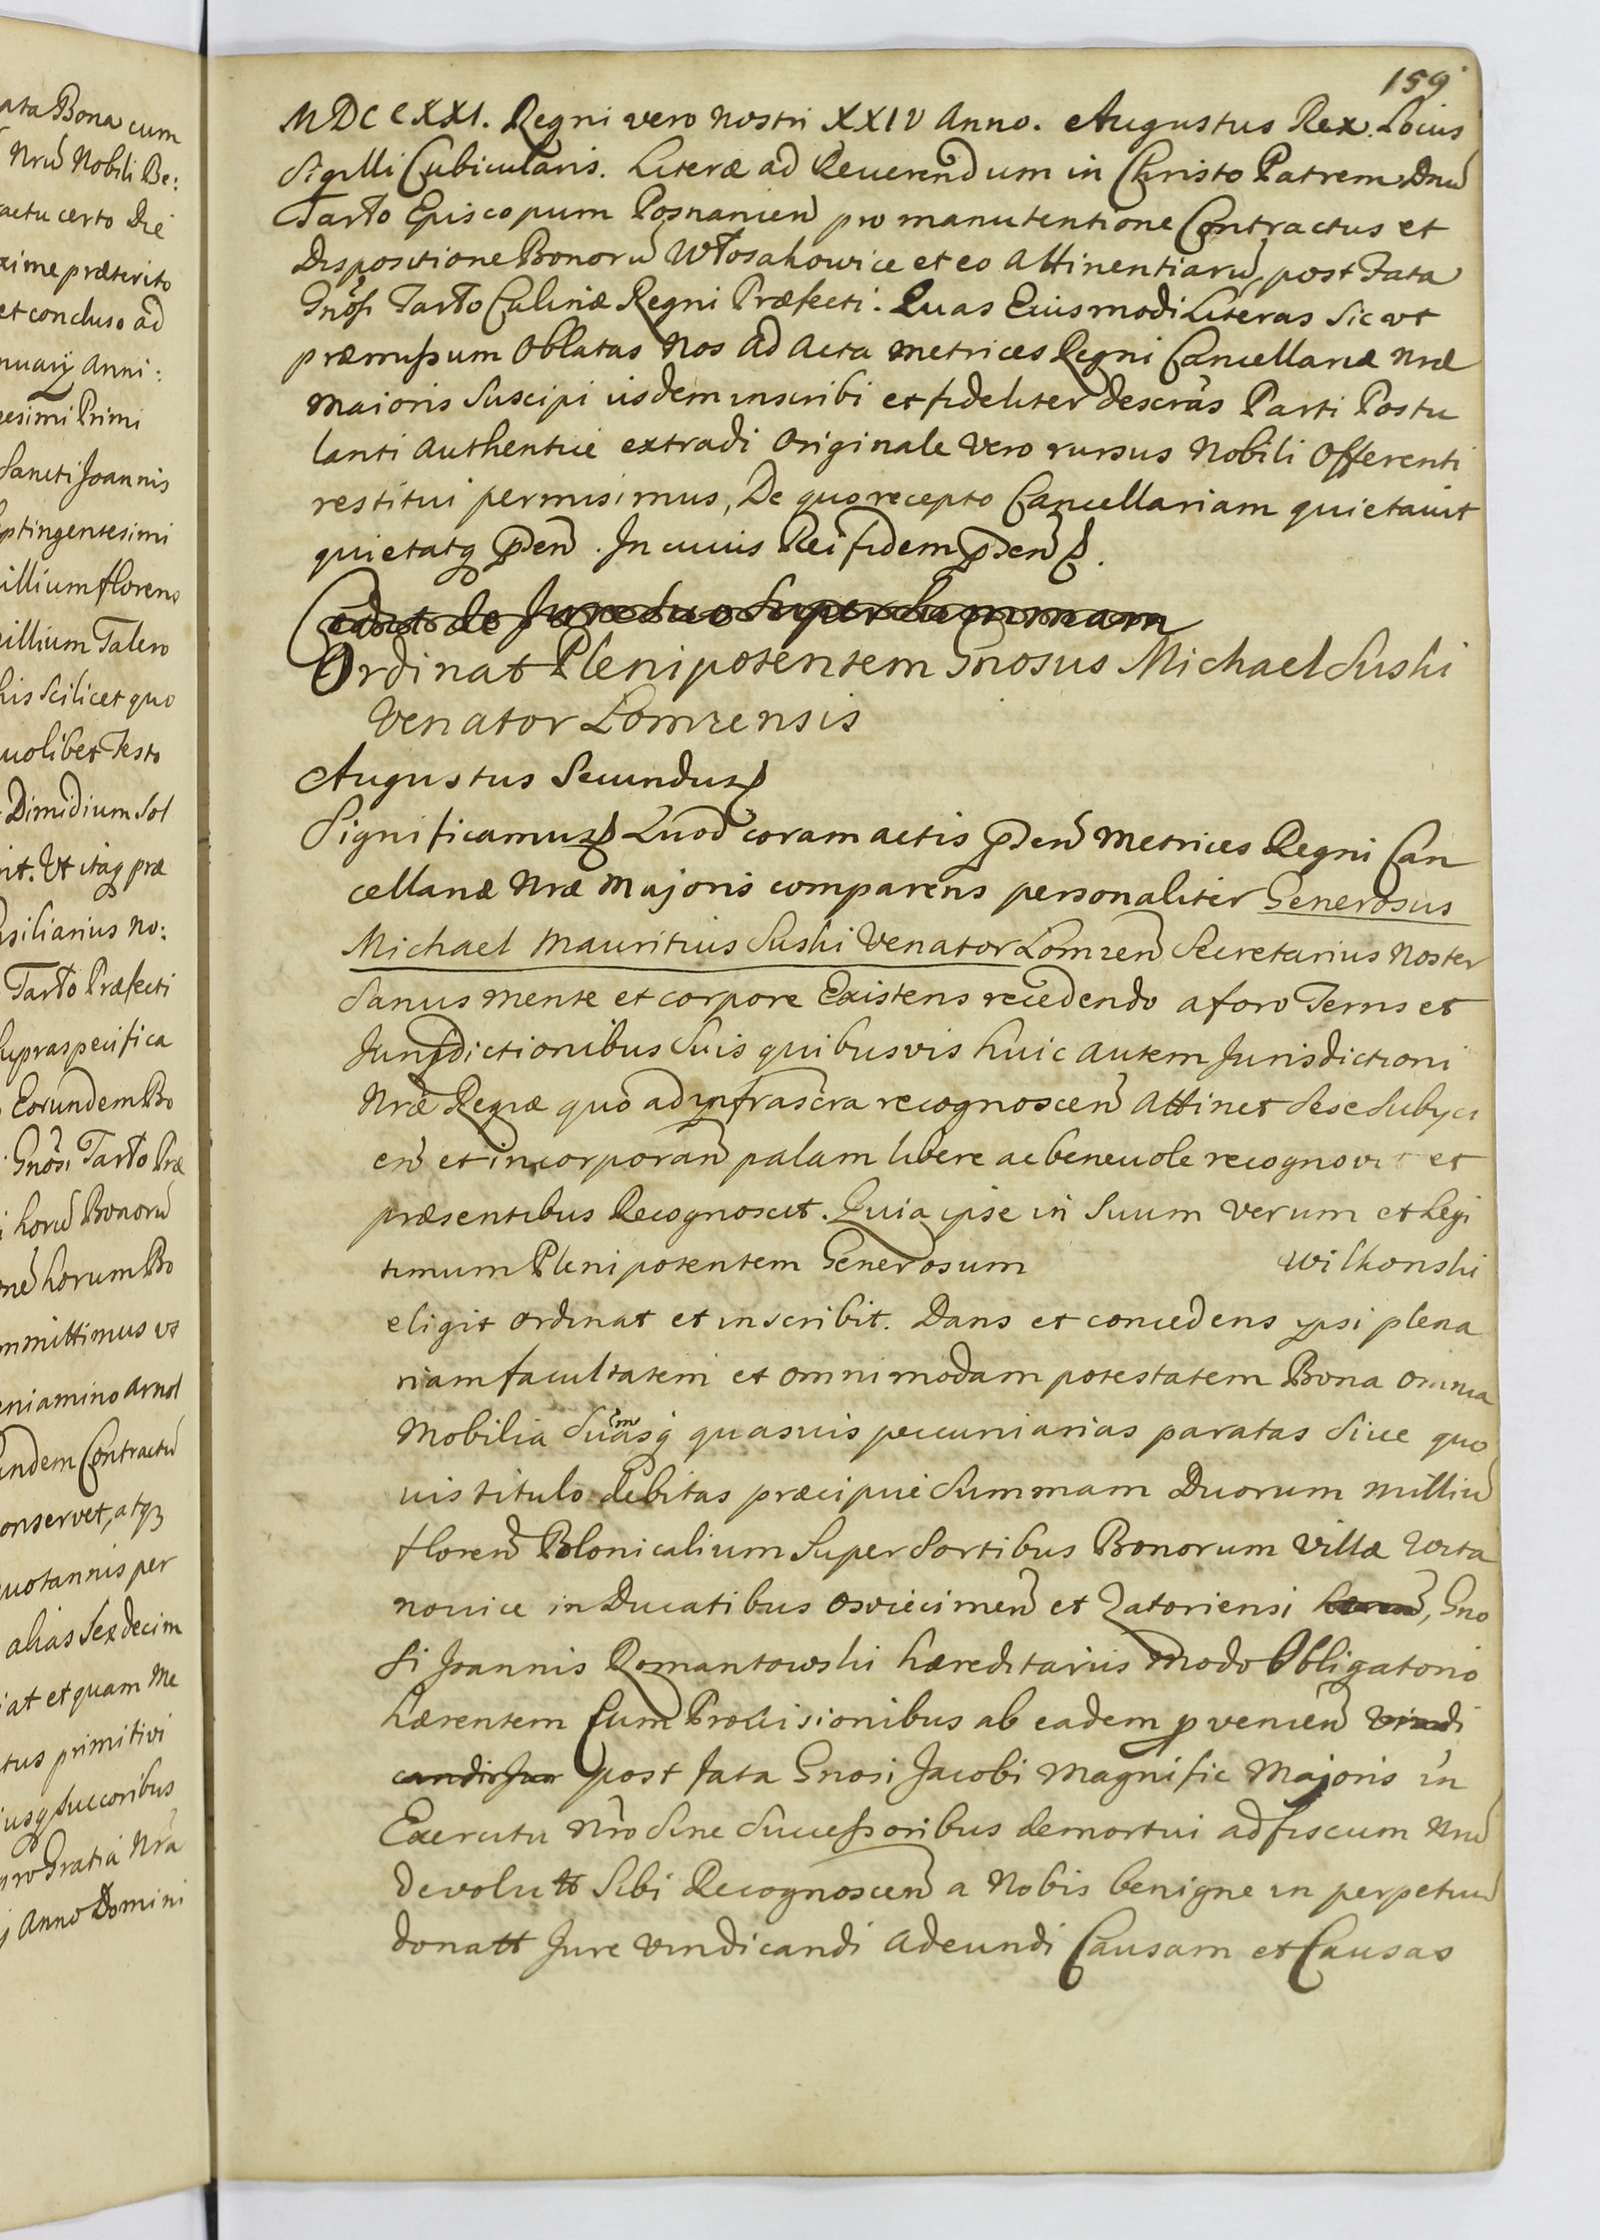 ata Bona cum
Nrũ Nobili Be:
actu certo Die
xime præterito
et concluso ad
nuarÿ Anni:
gesimi Primi
Sancti Joannis
ptingentesimi
illium floreno
illium Talero
his scilicet quo
uolibet festo
Dimidium Sol
nit. Ut itaq præ
nsiliarius No:
Tarło Præfecti
supraspecifica
Eorundem Bo
Gnosi Tarło Præ
i horũ Bonorũ
horum Bo
mmittimus ut
eniamino Arnol
undem Contractũ
onservet, atq
uotannis per
alias Sexdecim
iat et quam Me
tus primitivi
usq Succoribus
pro Gratia Nra
j Anno Domini
159
MDCCXXI. Regni vero Nostri XXIV Anno. Augustus Rex. Locus
Sigilli Cubicularis. Literæ ad Reuerendum in Christo Patrem Dnũ
Tarło Episcopum Posnanien̄ pro manutentione Contractus et
Dispositione Bonorũ Włosakowice et eo Attinentiarũ, post Fata
Gnosi Tarło Culinæ Regni Præfecti. Quas Eiusmodi Literas Sic ut
præmissum Oblatas Nos ad Acta Metrices Regni Cancellariæ Nræ
Maioris Suscipi iisdem inscribi et fideliter descrãs Parti Postu
lanti Authentice extradi Originale Vero rursus Nobili Offerenti
restitui permisimus, De quo recepto Cancellariam quietauit
quietatq p̃sen̄. In cuius Rei fidem p̃sen̄ p.
Cedit de Jure Suo Super Summam
Ordinat Plenipotentem Gnosus Michael Suski
Venator Lomzensis
Augustus Secundus
Significamus Quod coram actis p̃sen̄ Metrices Regni Can
cellariæ Nræ Majoris comparens personaliter Generosus
Michael Mauritius Suski Venator Lomzen̄ Secretarius Noster
Sanus mente et corpore Existens recedendo a foro Terris et
Jurisdictionibus Suis quibusvis huic autem Jurisdictioni
Nræ Regiæ quo ad infrascra recognoscen̄ Attinet Sese Subyci
en̄ et incorporan̄ palam libere ac beneuole recognovit et
præsentibus Recognoscit. Quia ipse in Suum Verum et Legi
timum Plenipotentem Generosum Wilkonski
eligit ordinat et inscribit. Dans et concedens ypsi plena
riam facultatem et omnimodam potestatem Bona omnia
Mobilia Suãsq quasuis pecuniarias paratas Siue quo
uis titulo debitas præcipue Summam Duorum Milliũ
floren̄ Polonicalium Super Sortibus Bonorum Villæ Wita
nouice in Ducatibus Osviecimen̄ et Zatoriensi hæren̄, Gno
Si Joannis Romantowski hæreditariis Modo Obligatorio
hærentem Cum Prouisionibus ab eadem p venien̄ vindi
candi Jure post fata Gnosi Jacobi Magnific Majoris in
Exercitu Nro Sine Successoribus demortui ad fiscum Nrũ
devolutt Sibi Recognoscen̄ a Nobis benigne in perpetuũ
donatt Jure vindicandi Adeundi Causam et Causas